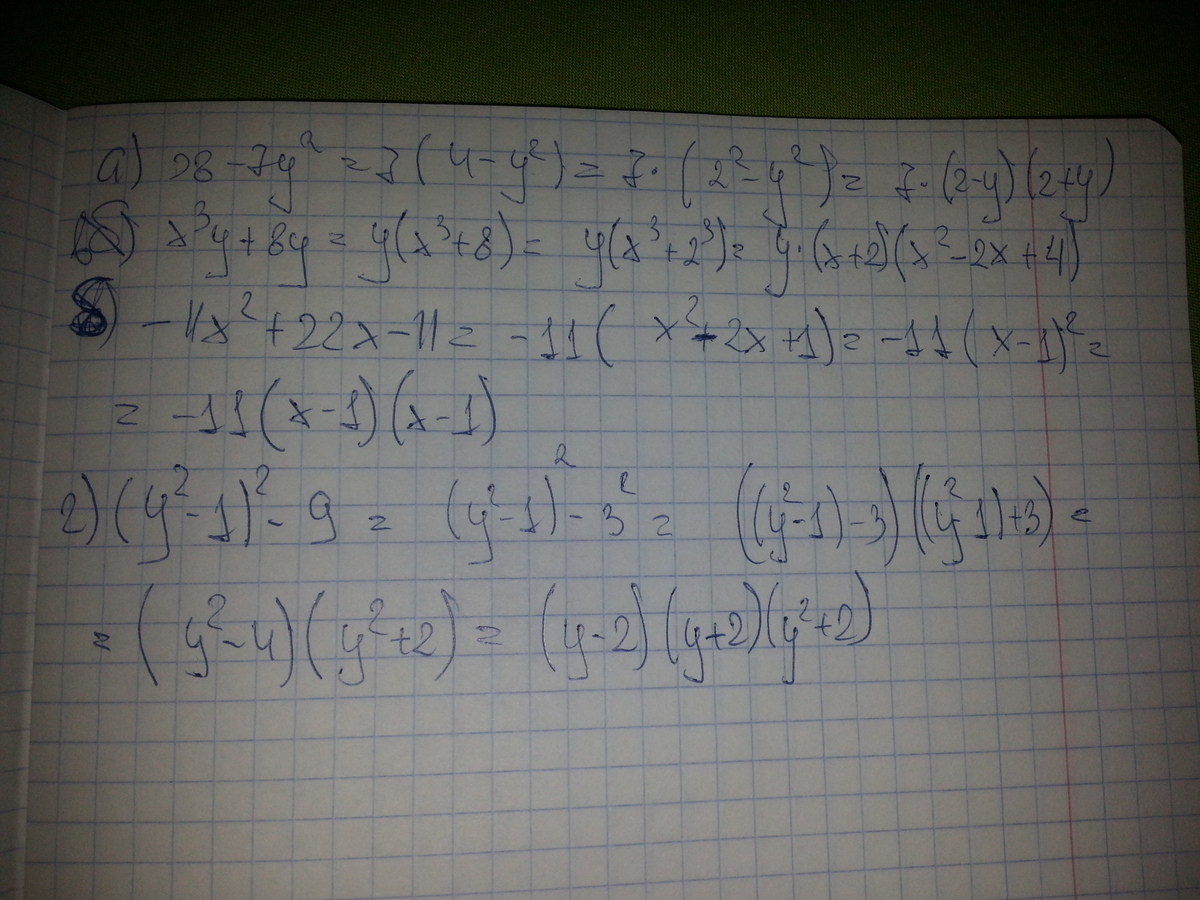 а) 28 - 7y² = 7 ( 4 - y² ) = 7 · ( 2² - y² ) = 7 · (2-y) (2+y)
б) x³y + 8y = y(x³+8) = y(x³+2³) = y · (x+2)(x²-2x+4)
в) - 11x² + 22x - 11 = -11 ( x² - 2x + 1) = -11 ( x-1)² =
= -11 (x-1) (x-1)
2) (y²-1)² - 9 = (y²-1)² - 3² = ((y²-1)-3) ((y²-1)+3) =
= ( y²-4) ( y²+2) = (y-2) (y+2) (y²+2)